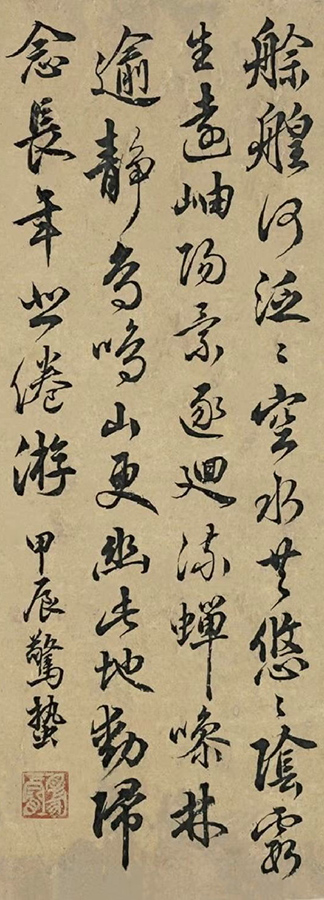 艅艎何泛〻空水共悠〻陰霞
生遠岫陽景逐廻流蟬噪林
逾静鳥鳴山更幽此地動歸
念長年悲倦游
甲辰驚蟄